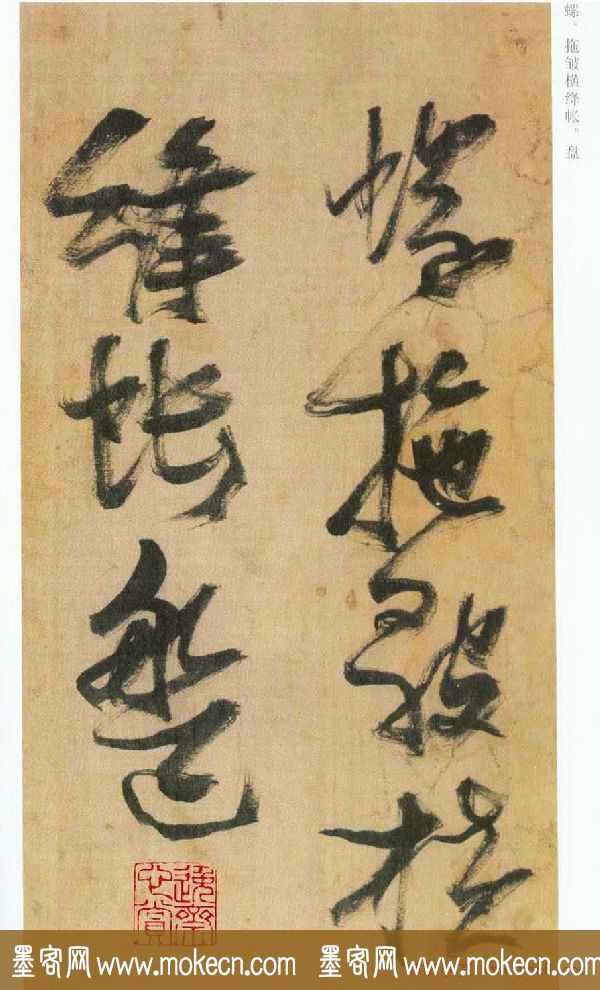 螺。拖皱横绛帐。盘
螺拖皺横
絳帳盤
墨客网 www.mokecn.com 墨客网 www.mokecn.com